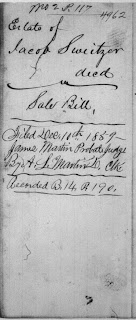 No 2 R 117
4962
Estate of
Jacob Switzer
decd
Sale Bill,
Filed Dec. 10th 1859
James Martin Probate Judge
By A. L. Martin D. Clk
Recorded B. 14. P. 190.